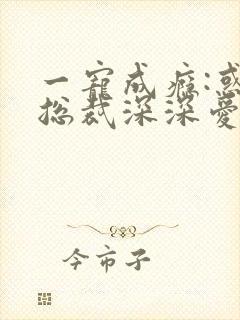 一宠成瘾:惑
总裁深深爱
今市子